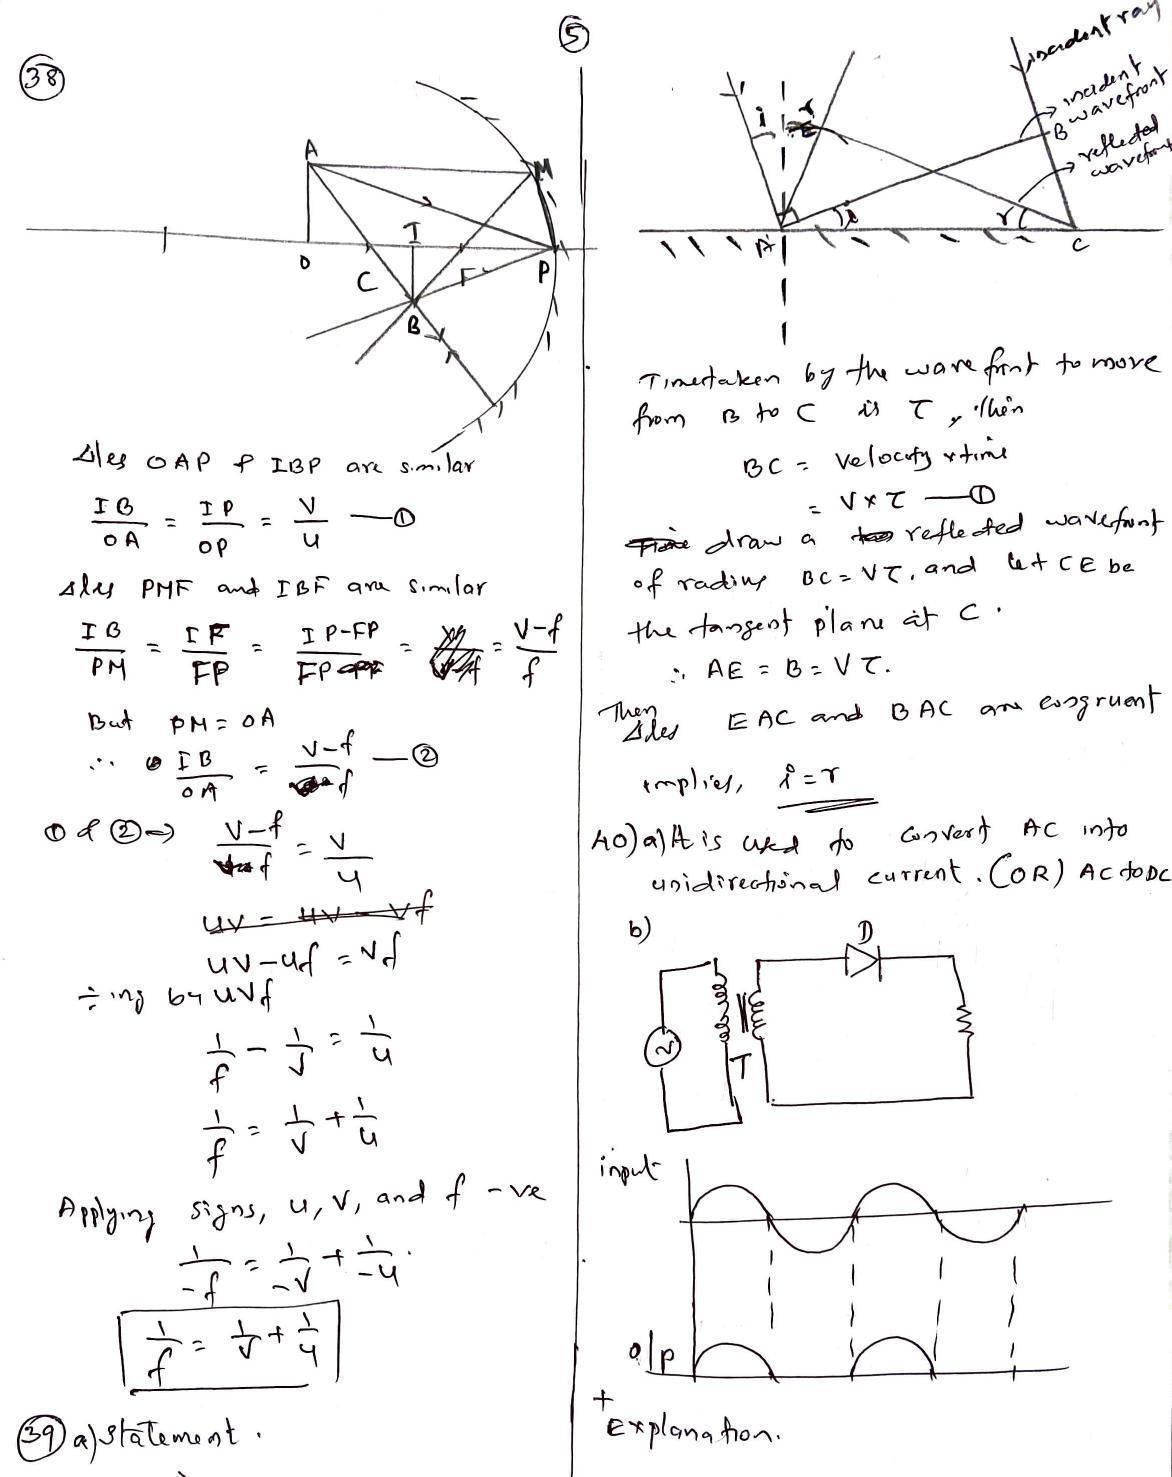 5
38
A
M
I
O
C
F
P
B
Δles OAP & IBP are similar
IB/OA = IP/OP = V/u —①
Δles PMF and IBF are similar
IB/PM = IF/FP = IP-FP/FP = = V-f/f
But PM = OA
∴ IB/OA = V-f/f —②
① & ② ⇒ V-f/f = V/u
uv = uv - vf
uv - uf = vf
÷ing by uvf
1/f - 1/v = 1/u
1/f = 1/v + 1/u
Applying signs, u, v, and f -ve
1/-f = 1/-v + 1/-u.
1/f = 1/v + 1/u
39 a) Statement.
incident ray
incident
wavefront
reflected
wavefront
i
r
E
B
i
r
A
C
Timetaken by the wave front to move
from B to C is τ, then
BC = Velocity x time
= V x τ —①
draw a reflected wavefront
of radius BC = Vτ, and let CE be
the tangent plane at C.
∴ AE = B = Vτ.
Then
Δles EAC and BAC are congruent
implies, i = r
40) a) It is used to convert AC into
unidirectional current. (OR) AC to DC
b)
D
T
input
o/p
+
Explanation.